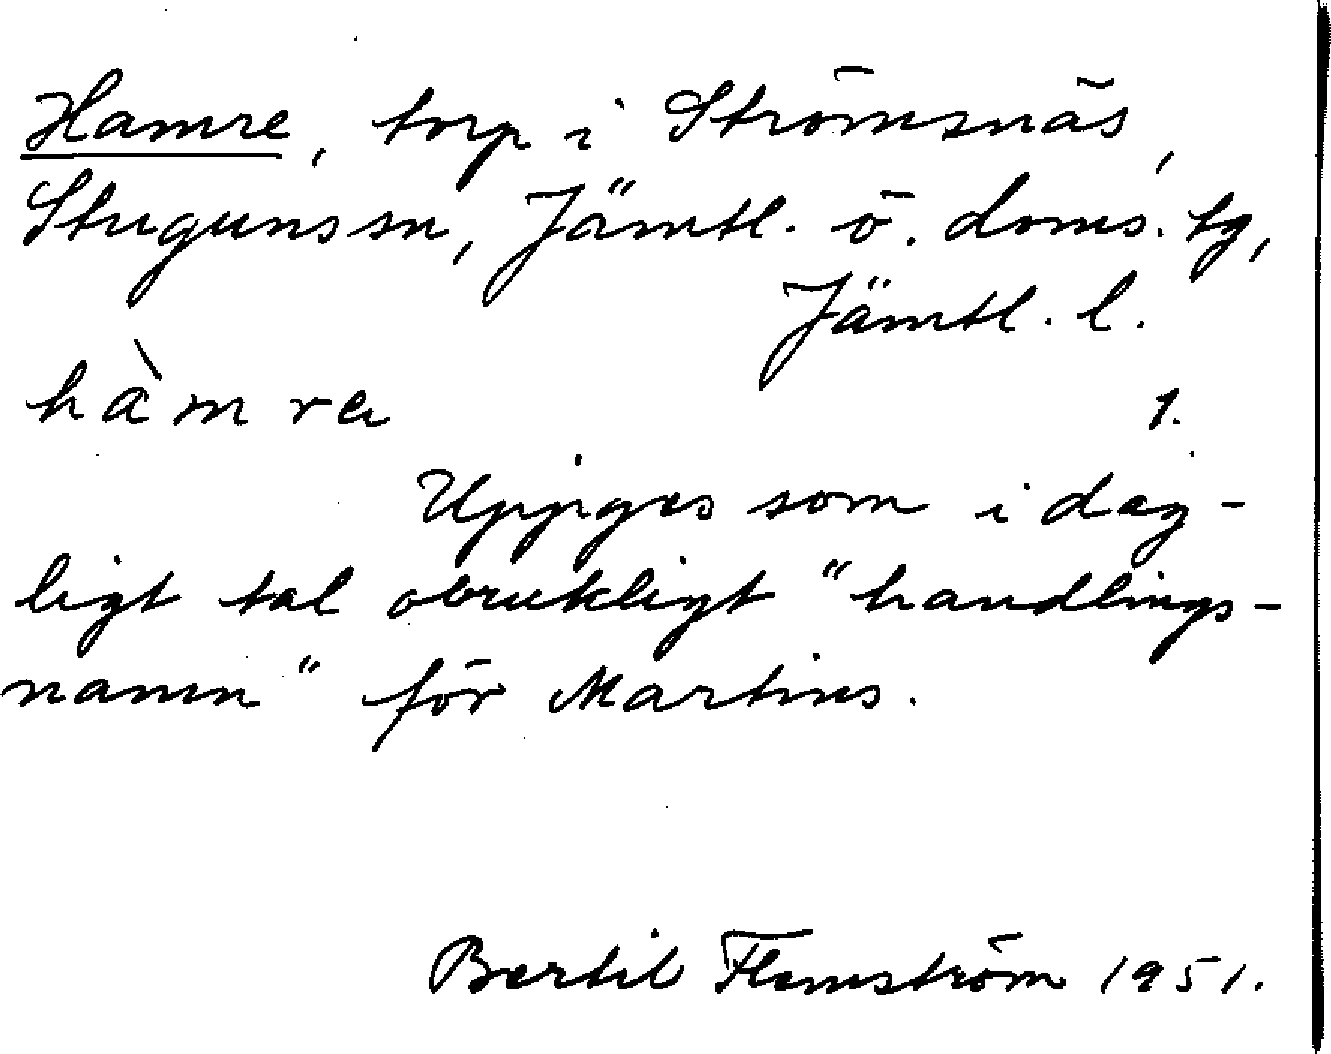 Hamre, torp i Strömsnäs,
Stuguns sn, Jämtl. ö. doms. tg,
Jämtl. l.
hàmra 1.
Uppges som i dag-
ligt tal obrukligt "handlings-
namn" för Martins.
Bertil Flemström 1951.